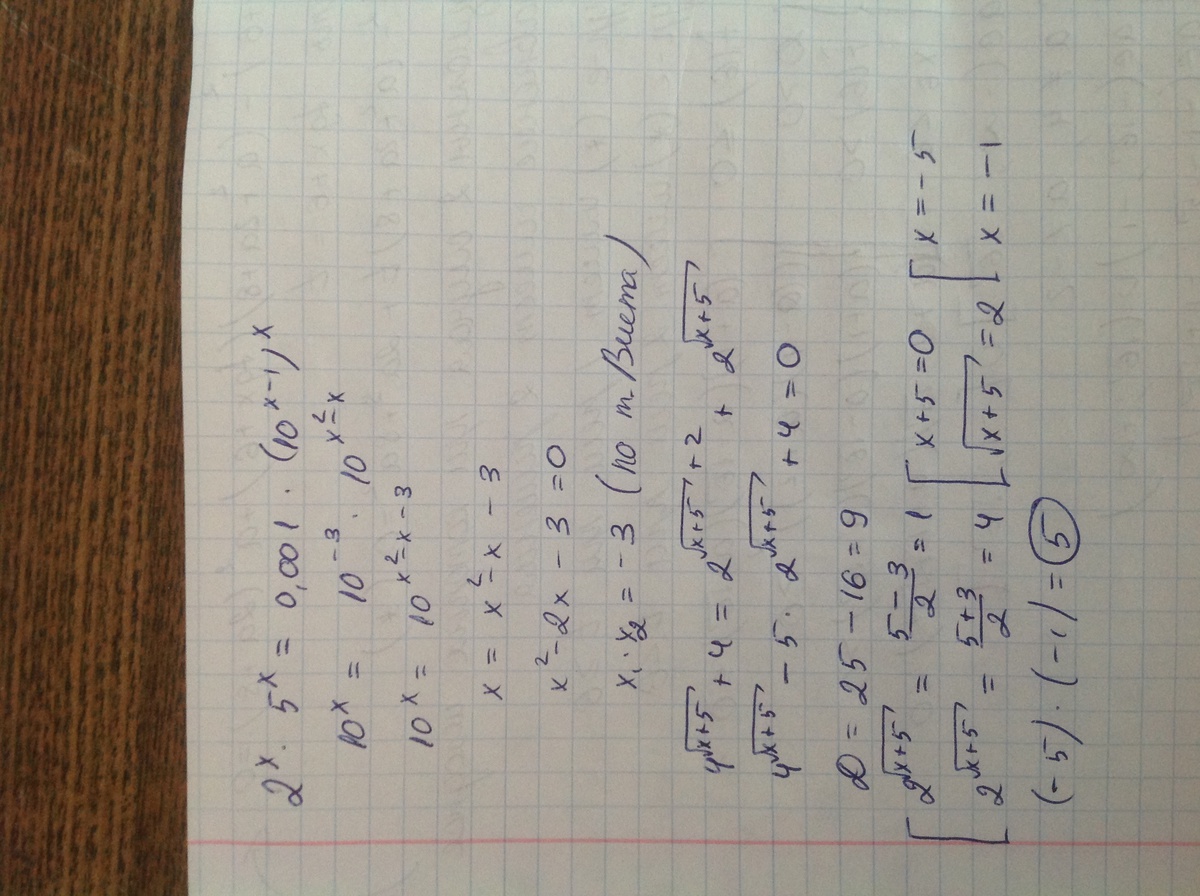 2^x · 5^x = 0,001 · (10^(x-1))^x
10^x = 10^(-3) · 10^(x²-x)
10^x = 10^(x²-x-3)
x = x²-x-3
x²-2x-3=0
x₁·x₂ = -3 (по т. Виета)
4^√(x+5) + 4 = 2^(√(x+5)+2) + 2^√(x+5)
4^√(x+5) - 5 · 2^√(x+5) + 4 = 0
D = 25-16=9
[ 2^√(x+5) = (5-3)/2 = 1 [ x+5=0 [ x=-5
[ 2^√(x+5) = (5+3)/2 = 4 [ √(x+5) = 2 [ x=-1
(-5)·(-1)=5